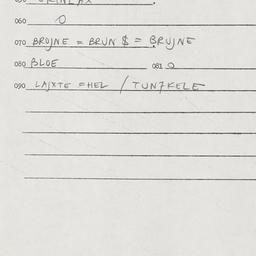 060 O
070 BROJNE = BRUN $ = BRUJNE
080 BLOE 081 O
090 LAJXTE = HEL / TUNZKELE